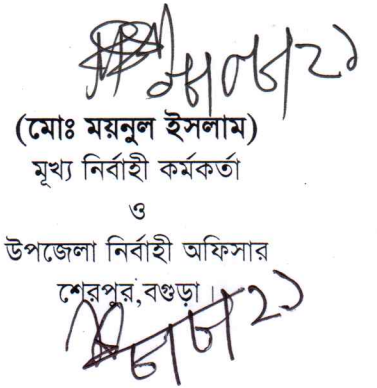 (মোঃ ময়নুল ইসলাম)
মূখ্য নির্বাহী কর্মকর্তা
ও
উপজেলা নির্বাহী অফিসার
শেরপুর,বগুড়া।